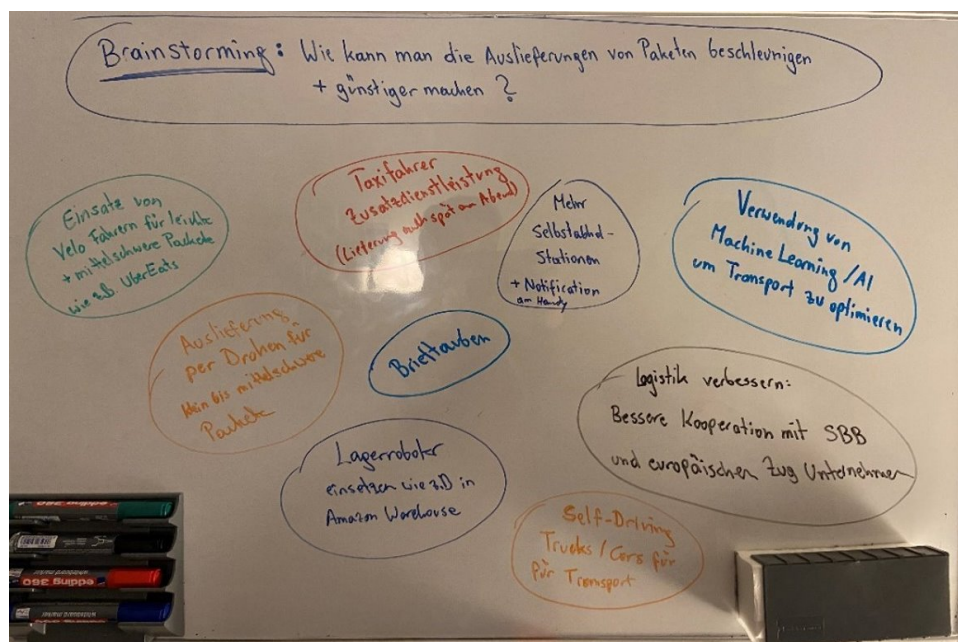 Brainstorming: Wie kann man die Auslieferungen von Paketen beschleunigen
+ günstiger machen?
Einsatz von
Velo Fahrern für leichte
+ mittelschwere Packete
wie z.B. UberEats
Taxifahrer
Zusatzdienstleistung
(Lieferung auch spät am Abend)
Mehr
Selbstabhol-
Stationen
+ Notification
am Handy
Verwendung von
Machine Learning / AI
um Transport zu optimieren
Auslieferung
per Drohen für
klein bis mittelschwere
Packete
Brieftauben
Logistik verbessern:
Bessere Kooperation mit SBB
und europäischen Zug Unternehmen
Lagerroboter
einsetzen wie z.B in
Amazon Warehouse
Self-Driving
Trucks / Cars für
für Transport
edding 360
edding 360